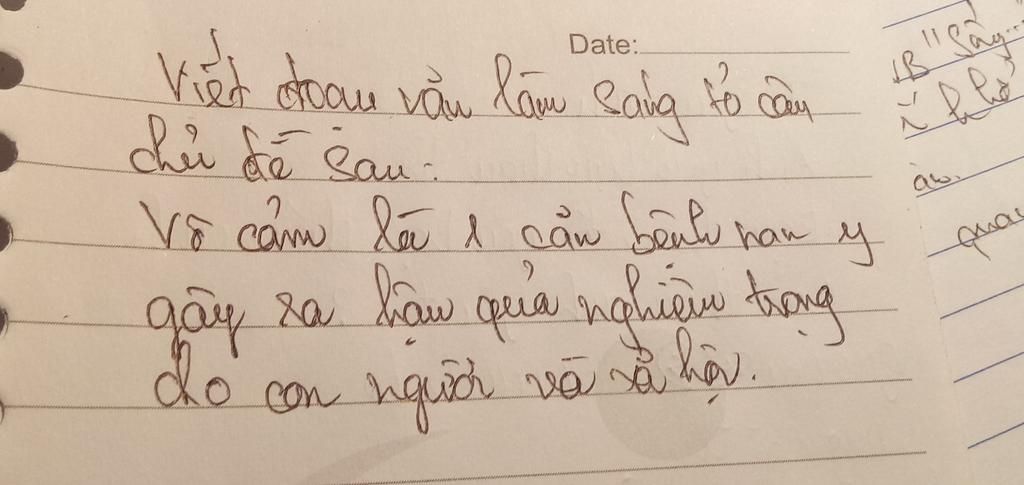 Date:
Viết đoạn văn làm sáng tỏ câu
chủ đề sau:
Vô cảm là 1 căn bệnh nan y
gây ra hậu quả nghiêm trọng
cho con người và xã hội.